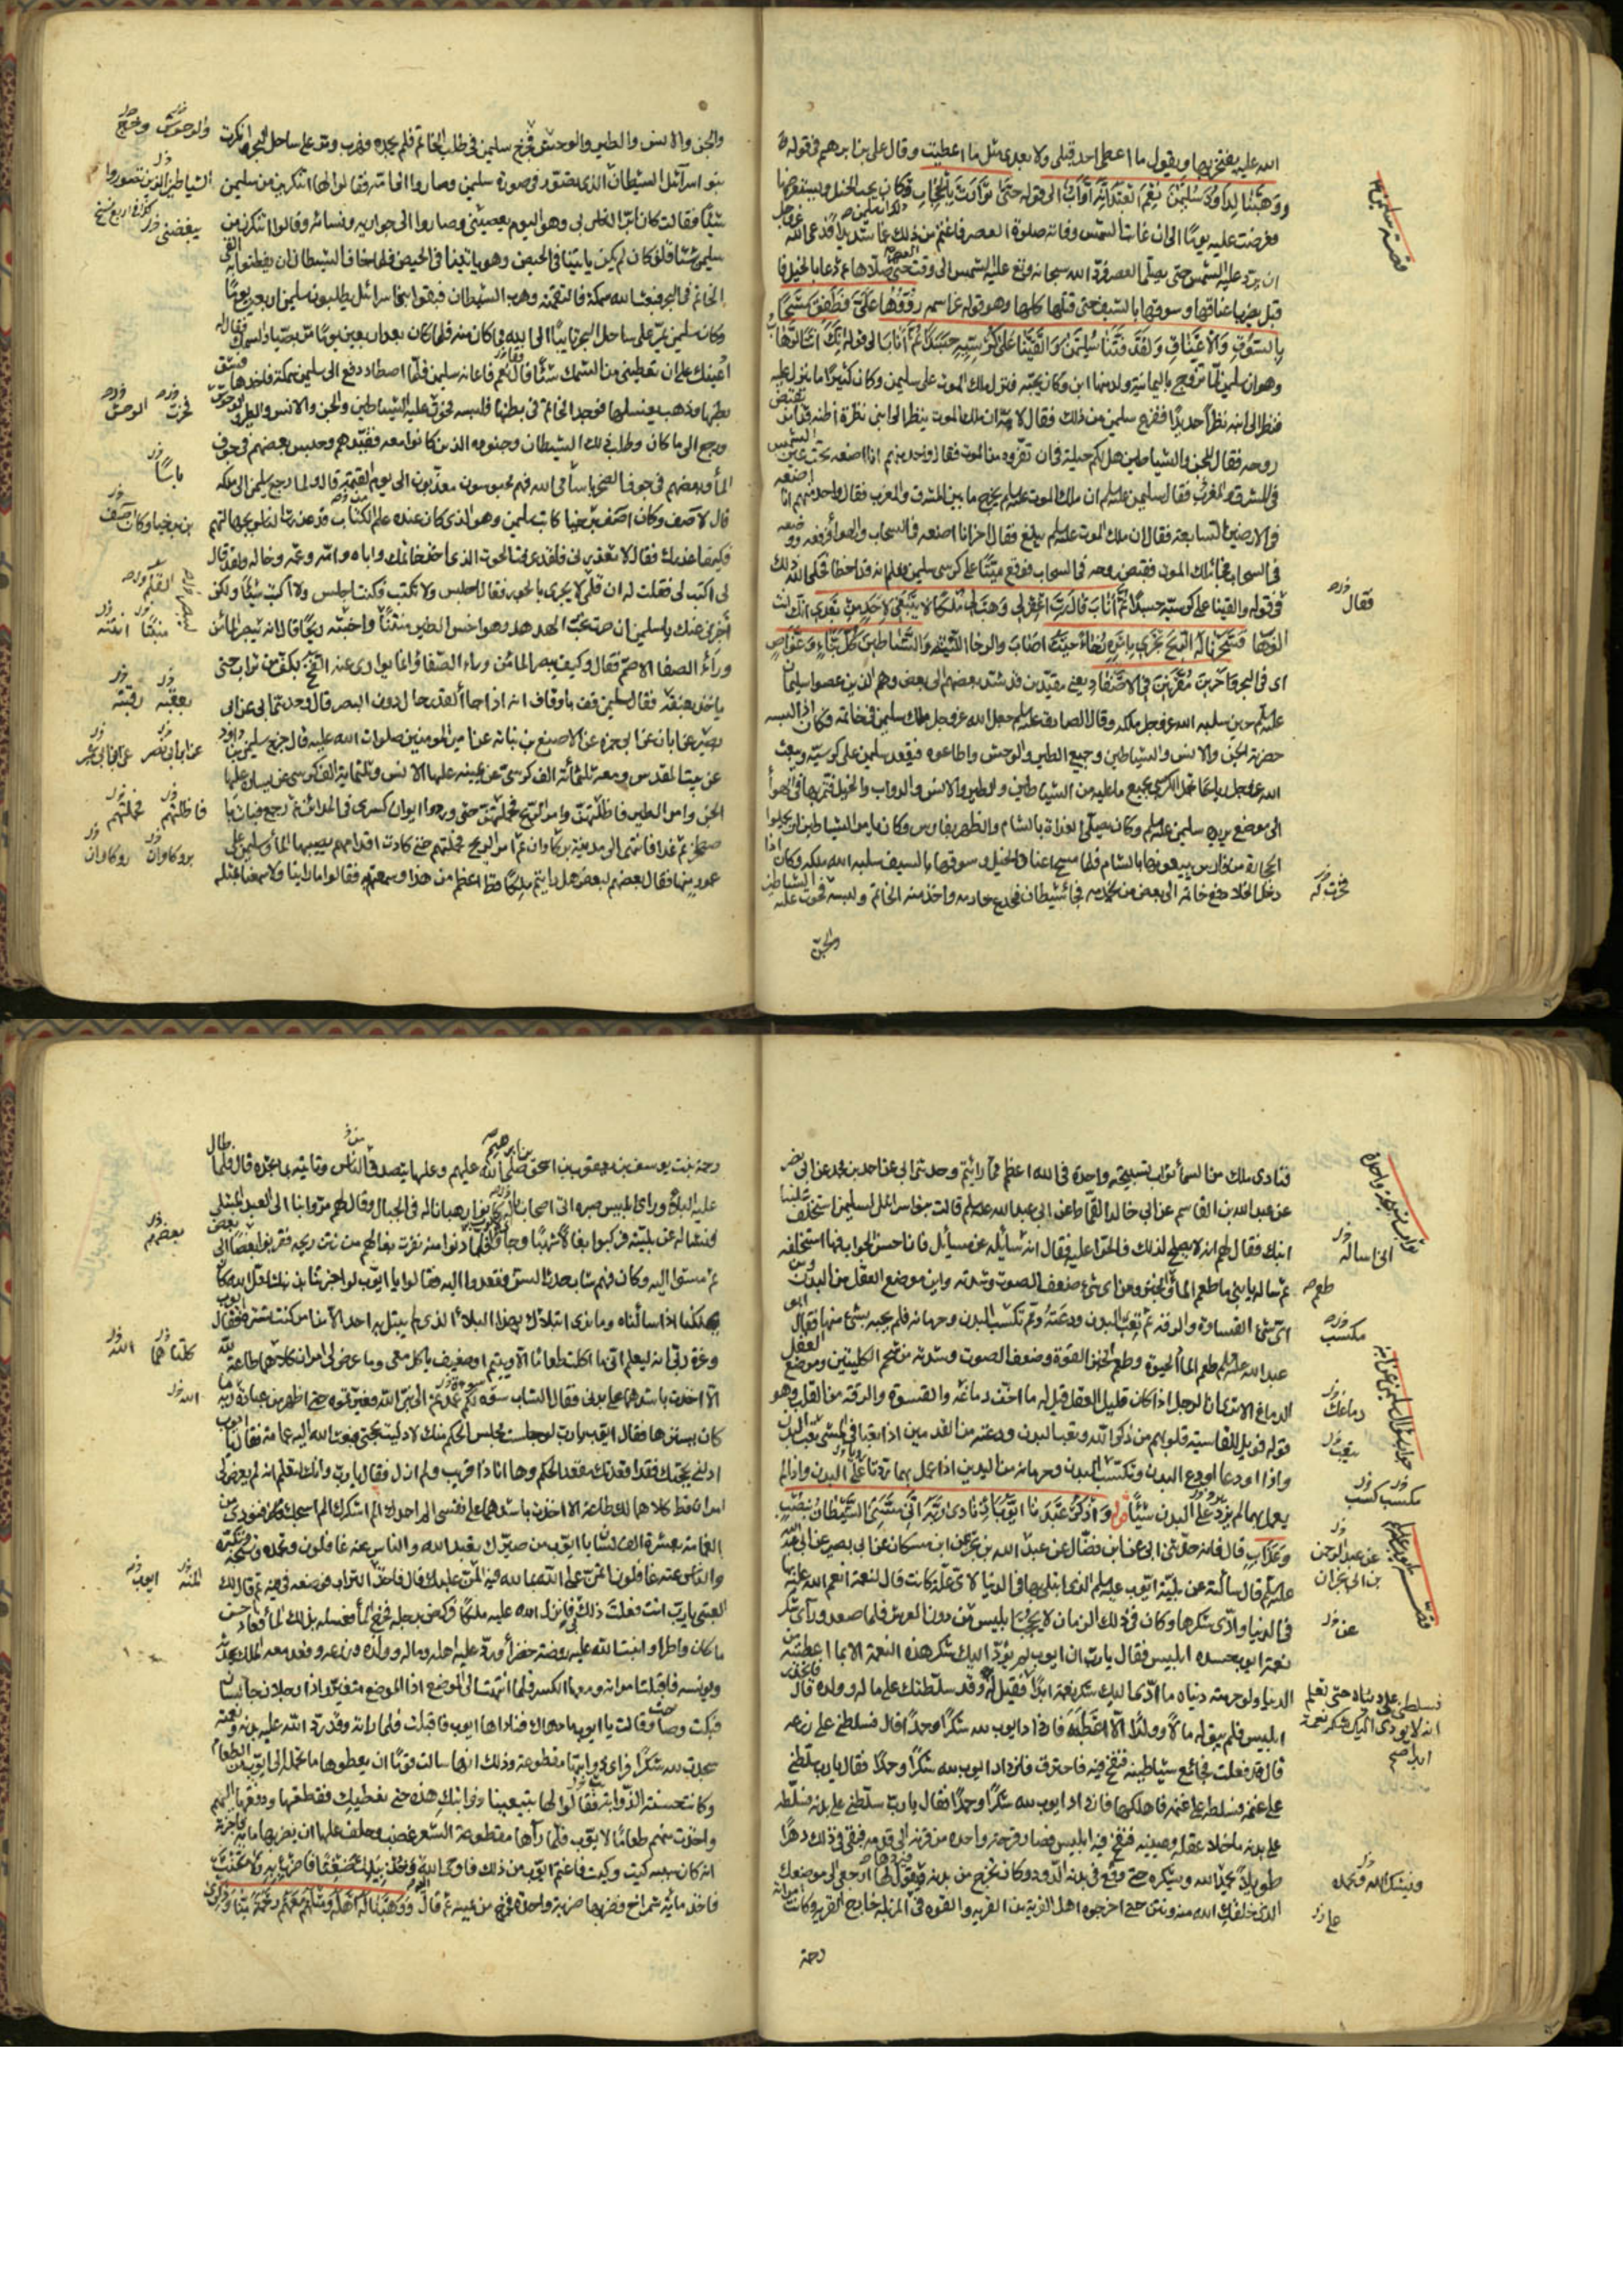 الله عليه يفتخر بها ويقول ما اعطى احد قبلى ولا بعدى مثل ما اعطيت وقال على بن ابرهيم فى قوله
ووهبنا لداود سليمن نعم العبد انه اواب الى قوله حتى توارت بالحجاب فكان يحب الخيل ويستعرضها
فعرضت عليه يومًا الى ان غابت الشمس وفاتته صلوة العصر فاغتم من ذلك غما شديدًا فدعى الله
ان يرد عليه الشمس حتى يصلى العصر فرد الله سبحانه وتع عليه الشمس الى وقت العصر حتى صلاها ثم دعا بالخيل فا
قبل يضرب اعناقها وسوقها بالسيف حتى قتلها كلها وهو قوله عز اسمه ردوها على فطفق مسحًا
بالسوق والاعناق ولقد فتنا سليمن والقينا على كرسيه جسدًا ثم اناب الى قوله انك انت الوهاب
وهو ان سليمن لما تزوج باليمانية ولد منها ابن وكان يحبه فنزل ملك الموت على سليمن وكان كثيرًا ما ينزل عليه
فنظر الى ابنه نظرًا حديدًا ففزع سليمن من ذلك فقال لامه ان ملك الموت ينظر الى ابنى نظرة اظنه قد امر بقبض
روحه فقال للجن والشياطين هل لكم حيلة فى ان تفروه من الموت فقال واحد منهم انا اضعه تحت عين الشمس
فى المشرق والمغرب فقال سليمن ان ملك الموت يخرج ما بين المشرق والمغرب فقال واحد منهم انا اضعه
فى الارضين السابعة فقال ان ملك الموت يبلغ فقال اخر انا اضعه فى السحاب والهواء فرفعه ووضعه
فى السحاب فجاء ملك الموت فقبض روحه فى السحاب فوقع ميتًا على كرسى سليمن فعلم انه قد اخطا فحكى الله ذلك
فى قوله والقينا على كرسيه جسدًا ثم اناب قال رب اغفر لى وهب لى ملكًا لا ينبغى لاحد من بعدى انك انت
الوهاب فسخرنا له الريح تجرى بامره رخاء حيث اصاب والرخا اللينة والشياطين كل بناء وغواص
اى فى البحر واخرين مقرنين فى الاصفاد يعنى مقيدين قد شد بعضهم الى بعض وهم الذين عصوا سليمان
حين سلبه الله عز وجل ملكه وقال الصادق جعل الله عز وجل ملك سليمن فى خاتمه فكان اذا لبسه
حضرته الجن والانس والشياطين وجميع الطير والوحش واطاعوه فيقعد على كرسيه ويبعث
الله عز وجل رياحًا تحمل الكرسى بجميع ما عليه من الشياطين والطير والانس والدواب والخيل فتمر بها فى الهواء
الى موضع يريده سليمن وكان يصلى الغداة بالشام والظهر بفارس وكان يامر الشياطين ان يحملوا
الحجارة من فارس يبيعونها بالشام فلما مسح اعناق الخيل وسوقها بالسيف سلبه الله ملكه وكان اذا
دخل الخلا دفع خاتمه الى بعض من يخدمه فجاء شيطان فخدع خادمه واخذ منه الخاتم ولبسه فخرت عليه الشياطين
والجن
قصة سليمن
فقال
فخرت له
والجن والانس والطير والوحش فخرج سليمن فى طلب الخاتم فلم يجده فهرب ومر على ساحل البحر وانكرت
بنو اسرائيل الشيطان الذى تصور فى صورة سليمن وصاروا الى امه فقالوا لها اتنكرين من سليمن
شيئًا فقالت كان ابر الناس بى وهو اليوم يعصينى وصاروا الى جواريه ونسائه وقالوا اتنكرن من
سليمن شيئًا قلن كان لم يكن ياتينا فى الحيض وهو ياتينا فى الحيض فلما خاف الشيطان ان يفطنوا به القى
الخاتم فى البحر فبعث الله سمكة فالتقمته وهرب الشيطان فبقوا بنو اسرائيل يطلبون سليمن اربعين يومًا
وكان سليمن يمر على ساحل البحر تايبًا الى الله مما كان منه فلما كان بعد اربعين يومًا مر بصياد يصيد السمك فقال له
اعينك على ان تعطينى من السمك شيئًا قال نعم فاعانه سليمن فلما اصطاد دفع الى سليمن سمكة فاخذها فشق
بطنها وذهب يغسلها فوجد الخاتم فى بطنها فلبسه فخرت عليه الشياطين والجن والانس والطير والوحش
ورجع الى ما كان وطلب ذلك الشيطان وجنوده الذين كانوا معه فقيدهم وحبس بعضهم فى جوف
الماء وبعضهم فى جوف الصخر باسامى الله فهم محبوسون معذبون الى يوم القيمة قال ولما رجع سليمن الى ملكه
قال لاصف وكان اصف بن برخيا كاتب سليمن وهو الذى كان عنده علم من الكتاب قد عذرت الناس بجهالتهم
فكيف اعذرك فقال لا تعذرنى فلقد عرفت الحوت الذى اخذ خاتمك واباه وامه وعمه وخاله ولقد قال
لى اكتب لى فقلت له ان قلمى لا يجرى بالجور فقال اجلس ولا تكتب فكنت اجلس ولا اكتب شيئًا ولكن
اخبرنى عنك يا سليمن ان صرت تحب الهدهد وهو اخس الطير منتنًا واخبثه ريحًا قال انه يبصر الماء من
وراء الصفا الاصم فقال وكيف يبصر الماء من وراء الصفا وانما يوارى عنه الفخ بكف من تراب حتى
ياخذ بعنقه فقال سليمن قف يا وقاف انه اذا جاء القدر حال دون البصر قال وحدثنا ابى عن ابى
بصير عن ابان عن ابى حمزة عن الاصبغ بن نباته عن امير المؤمنين صلوات الله عليه قال خرج سليمن بن داود
من بيت المقدس ومعه ثلثمائة الف كرسى عن يمينه عليها الانس وثلثمائة الف كرسى عن يساره عليها
الجن وامر الطير فاظلتهم وامر الريح فحملتهم حتى وردوا ايوان كسرى فى المداين ثم رجع فبات با
صطخر ثم غدا فانتهى الى مدينة بركاوان ثم امر الريح فحملتهم حتى كادت اقدامهم يصيبها الماء وسليمن على
عمود منها فقال بعضهم لبعض هل رايتم ملكًا قط اعظم من هذا وسمعتم فقالوا ما راينا ولا سمعنا بمثله
والوحوش
الشياطين الذين تصوروا
يبغضنى
فخرت الوحش
باسًا
بن برخيا وكان اصف
القلم
منتنًا انتنه
بعنقه رقبته
فاظلتهم فحملتهم
بركاوان
فنادى ملك من السماء ثواب تسبيحة واحدة فى الله اعظم مما رايتم وحدثنى ابى عن احمد بن محمد عن ابى نصر
عن عبدالله بن القاسم عن ابى خالد القماط عن ابى عبدالله قالت بنو اسرائيل لسليمن استخلف علينا
ابنك فقال لهم انه لا يصلح لذلك فالحوا عليه فقال انى سائله عن مسائل فان احسن الجواب فيها استخلفه
ثم ساله يا بنى ما طعم الماء وطعم الخبز ومن اى شىء ضعف الصوت وشدته واين موضع العقل من البدن ومن
اى شىء القساوة والرقة ومم تعب البدن ودعته ومم تكسب البدن وحرمانه فلم يجبه بشىء منها فقال ابو
عبدالله طعم الماء الحيوة وطعم الخبز القوة وضعف الصوت وشدته من شحم الكليتين وموضع العقل
الدماغ الا ترى ان الرجل اذا كان قليل العقل قيل له ما اخف دماغه والقسوة والرقة من القلب وهو
قوله فويل للقاسية قلوبهم من ذكر الله وتعب البدن ودعته من القدمين اذا تعبا فى المشى تعب البدن
واذا اودعا اودع البدن وتكسب البدن وحرمانه من اليدين اذا عمل بهما ردتا على البدن واذا لم
يعمل بهما لم يرد على البدن شيئًا واذكر عبدنا ايوب اذ نادى ربه انى مسنى الشيطان بنصب
وعذاب قال فانه حدثنى ابى عن ابن فضال عن عبد الله بن بحر عن ابن مسكان عن ابى بصير عن ابى عبد الله
قال سالته عن بلية ايوب الذى ابتلى بها فى الدنيا لاى علة كانت قال لنعمة انعم الله عليه بها
فى الدنيا وادى شكرها وكان فى ذلك الزمان لا يحجب ابليس من دون العرش فلما صعد وراى شكر
نعمة ايوب حسده ابليس فقال يا رب ان ايوب لم يؤد اليك شكر هذه النعمة الا بما اعطيته من
الدنيا ولو حرمته دنياه ما ادى اليك شكر نعمة ابدًا فقيل له قد سلطتك على ماله وولده قال فانحدر
ابليس فلم يبق له مالًا وولدًا الا اعطبه فازداد ايوب لله شكرًا وحمدًا قال فسلطنى على زرعه
قال قد فعلت فجاء مع شياطينه فنفخ فيه فاحترق فازداد ايوب لله شكرًا وحمدًا فقال يا رب سلطنى
على غنمه فسلطه على غنمه فاهلكها فازداد ايوب لله شكرًا وحمدًا فقال يا رب سلطنى على بدنه فسلطه
على بدنه ما خلا عقله وعينيه فنفخ فيه ابليس فصار قرحة واحدة من قرنه الى قدمه فبقى فى ذلك دهرًا
طويلًا يحمد الله ويشكره حتى وقع فى بدنه الدود وكان تخرج من بدنه فيردها ويقول لها ارجعى الى موضعك
الذى خلقك الله منه ونتن حتى اخرجوه اهل القرية من القرية والقوه فى المزبلة خارج القرية وكانت امراته
رحمة
ثواب تسبيحة واحدة
انى اساله
طعم
مكسب
دماغك
تكسب كسب
عن عبد الرحمن
بن ابى نجران
عن
فسلطنى على دنياه حتى تعلم
انه لا يودى اليك شكر نعمة
ابدا
ويشكر الله ويحمده
على
رحمة بنت يوسف بن يعقوب بن اسحق بن ابرهيم صلى الله عليهم وعليها يتصدق من الناس وتاتيه بما تجده قال فلما طال
عليه البلاء وراى ابليس صبره اتى اصحابًا له كانوا رهبانا له فى الجبال وقال لهم مروا بنا الى العبد المبتلى
ونساله عن بليته فركبوا بغالًا شهبًا وجاؤا فلما دنوا منه نفرت بغالهم من نتن ريحه فقربوا بعضًا الى بعض
ثم مشوا اليه وكان فيهم شاب حدث السن فقعدوا اليه فقالوا يا ايوب لو اخبرتنا بذنبك لعل الله كان
يهلكنا اذا سالناه وما نرى ابتلاك بهذا البلاء الذى لم يبتل به احد الا من امر كنت تستره فقال ايوب
وعزة ربى انه ليعلم انى ما اكلت طعامًا الا ويتيم او ضعيف ياكل معى وما عرض لى امران كلاهما طاعة لله
الا اخذت باشدهما على بدنى فقال الشاب سوءة لكم عمدتم الى نبى الله فعيرتموه حتى اظهر من عبادة ربه ما
كان يسترها فقال ايوب يا رب لو جلست مجلس الحكم منك لادليت بحجتى فبعث الله اليه غمامة فقال يا ايوب
ادلنى بحجتك فقد اقعدتك مقعد الحكم وها انا ذا قريب ولم ازل فقال يا رب وانك لتعلم انه لم يعرض لى
امران قط كلاهما لك طاعة الا اخذت باشدهما على نفسى الم احمدك الم اشكرك الم اسبحك فنودى من
الغمامة بعشرة الف لسان يا ايوب من صيرك تعبد الله والناس عنه غافلون وتحمده وتسبحه وتكبره
والناس عنه غافلون اتمن على الله بما لله فيه المن عليك قال فاخذ التراب فوضعه فى فيه ثم قال لك
العتبى يا رب انت فعلت ذلك بى فانزل الله عليه ملكًا فركض برجله فخرج الماء فغسله بذلك الماء فعاد احسن
ما كان واطرا وانبت الله عليه روضة خضراء ورد عليه اهله وماله وولده وزرعه وقعد معه الملك يحدثه
ويونسه فاقبلت امراته ومعها الكسر فلما انتهت الى الموضع اذا الموضع متغير واذا رجلان جالسان
فبكت وصاحت وقالت يا ايوب ما دهاك فناداها ايوب فاقبلت فلما راته وقد رد الله عليه بدنه ونعمته
سجدت لله شكرًا فراى ذوائبها مقطوعة وذلك انها سالت قومًا ان يعطوها ما تحمله الى ايوب من الطعام
وكانت حسنة الذوائب فقالوا لها تبيعينا ذوائبك هذه حتى نعطيك فقطعتها ودفعتها اليهم
واخذت منهم طعامًا لايوب فلما رآها مقطوعة الشعر غضب وحلف عليها ان يضربها ماية فاخبرته
انه كان سببه كيت وكيت فاغتم ايوب من ذلك فاوحى الله وخذ بيدك ضغثًا فاضرب به ولا تحنث
فاخذ مائة شمراخ فضربها ضربة واحدة فخرج من يمينه ثم قال ووهبنا له اهله ومثلهم معهم رحمة منا وذكرى
بعضهم
كلتاهما الله
المنة ايوب